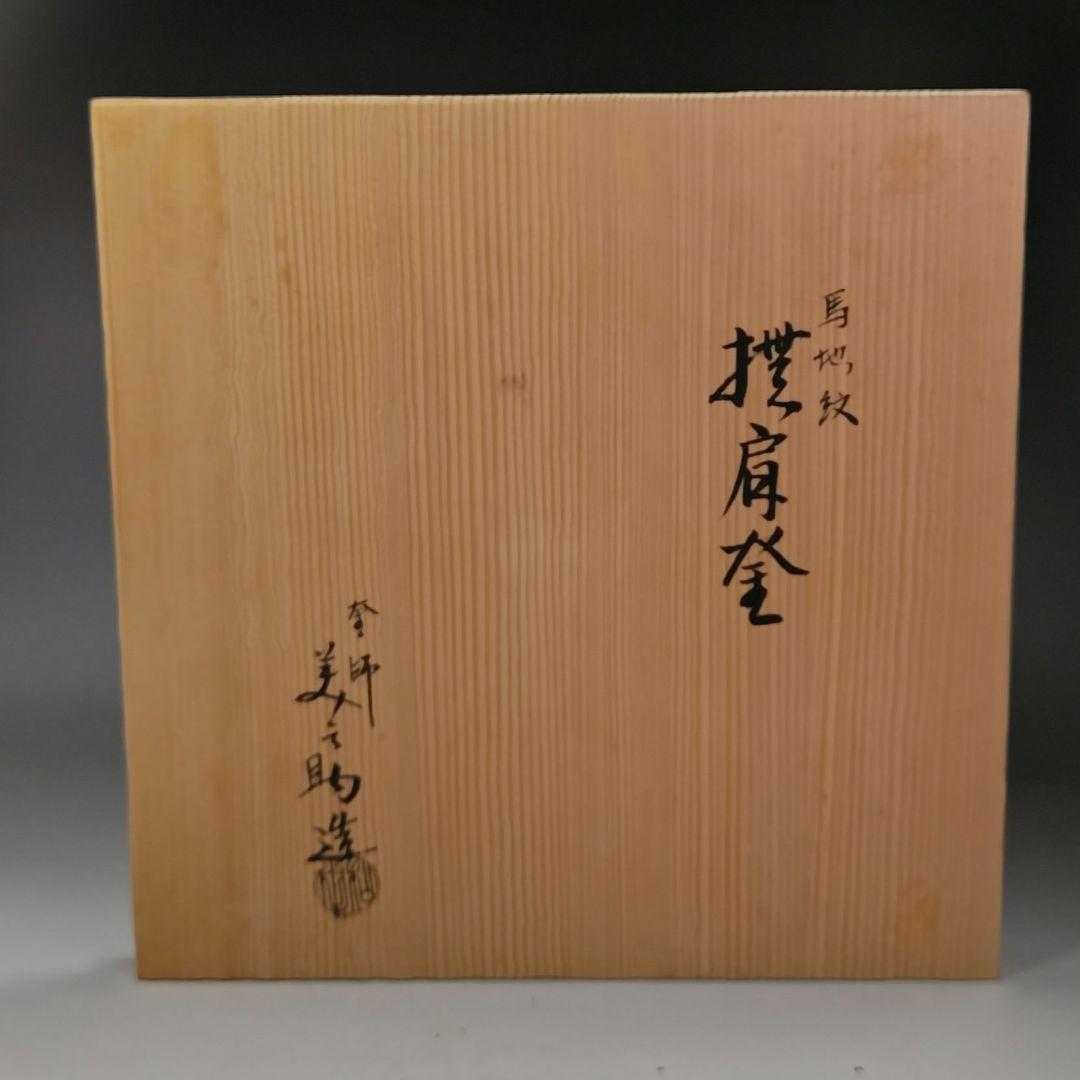 馬地紋
撫肩釜
釜師
美之助造